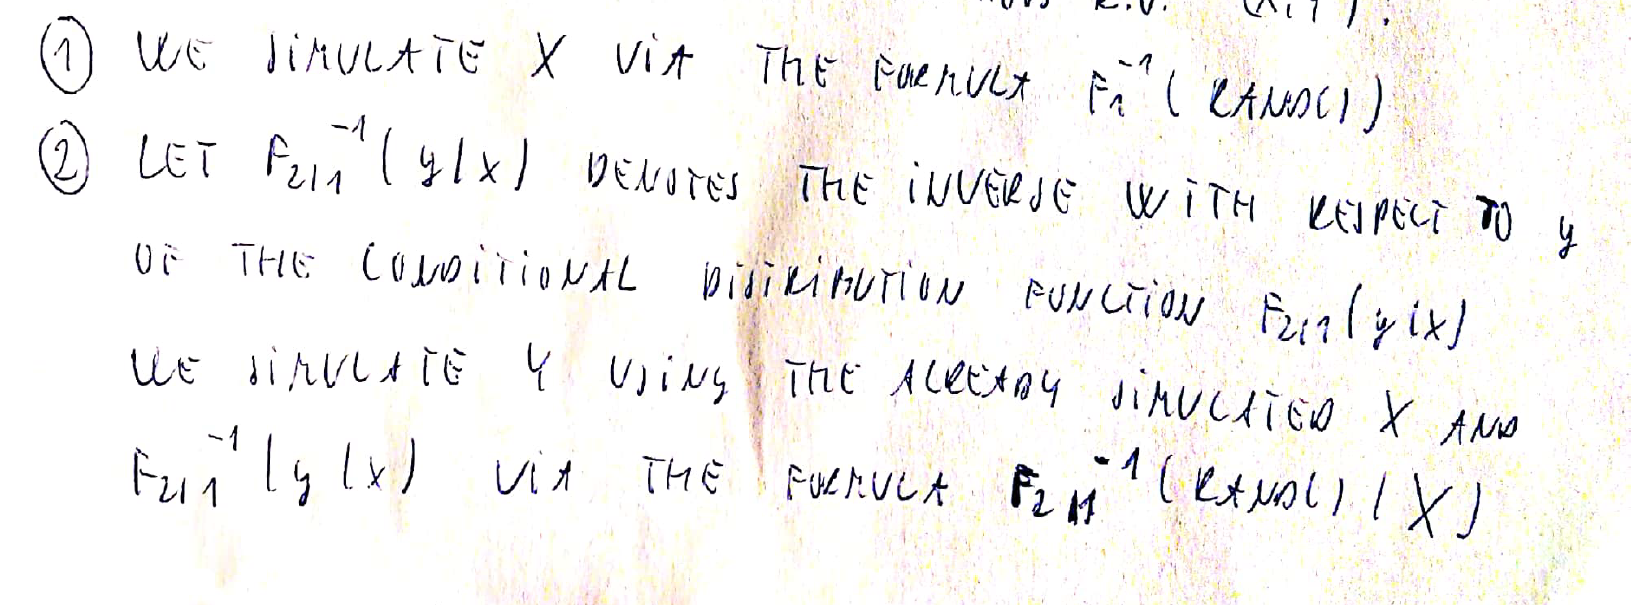 R.V. (X,Y).
① WE SIMULATE X VIA THE FORMULA F₁⁻¹(RAND())
② LET F₂|₁⁻¹(y|x) DENOTES THE INVERSE WITH RESPECT TO y
OF THE CONDITIONAL DISTRIBUTION FUNCTION F₂|₁(y|x)
WE SIMULATE Y USING THE ALREADY SIMULATED X AND
F₂|₁⁻¹(y|x) VIA THE FORMULA F₂|₁⁻¹(RAND()|X)